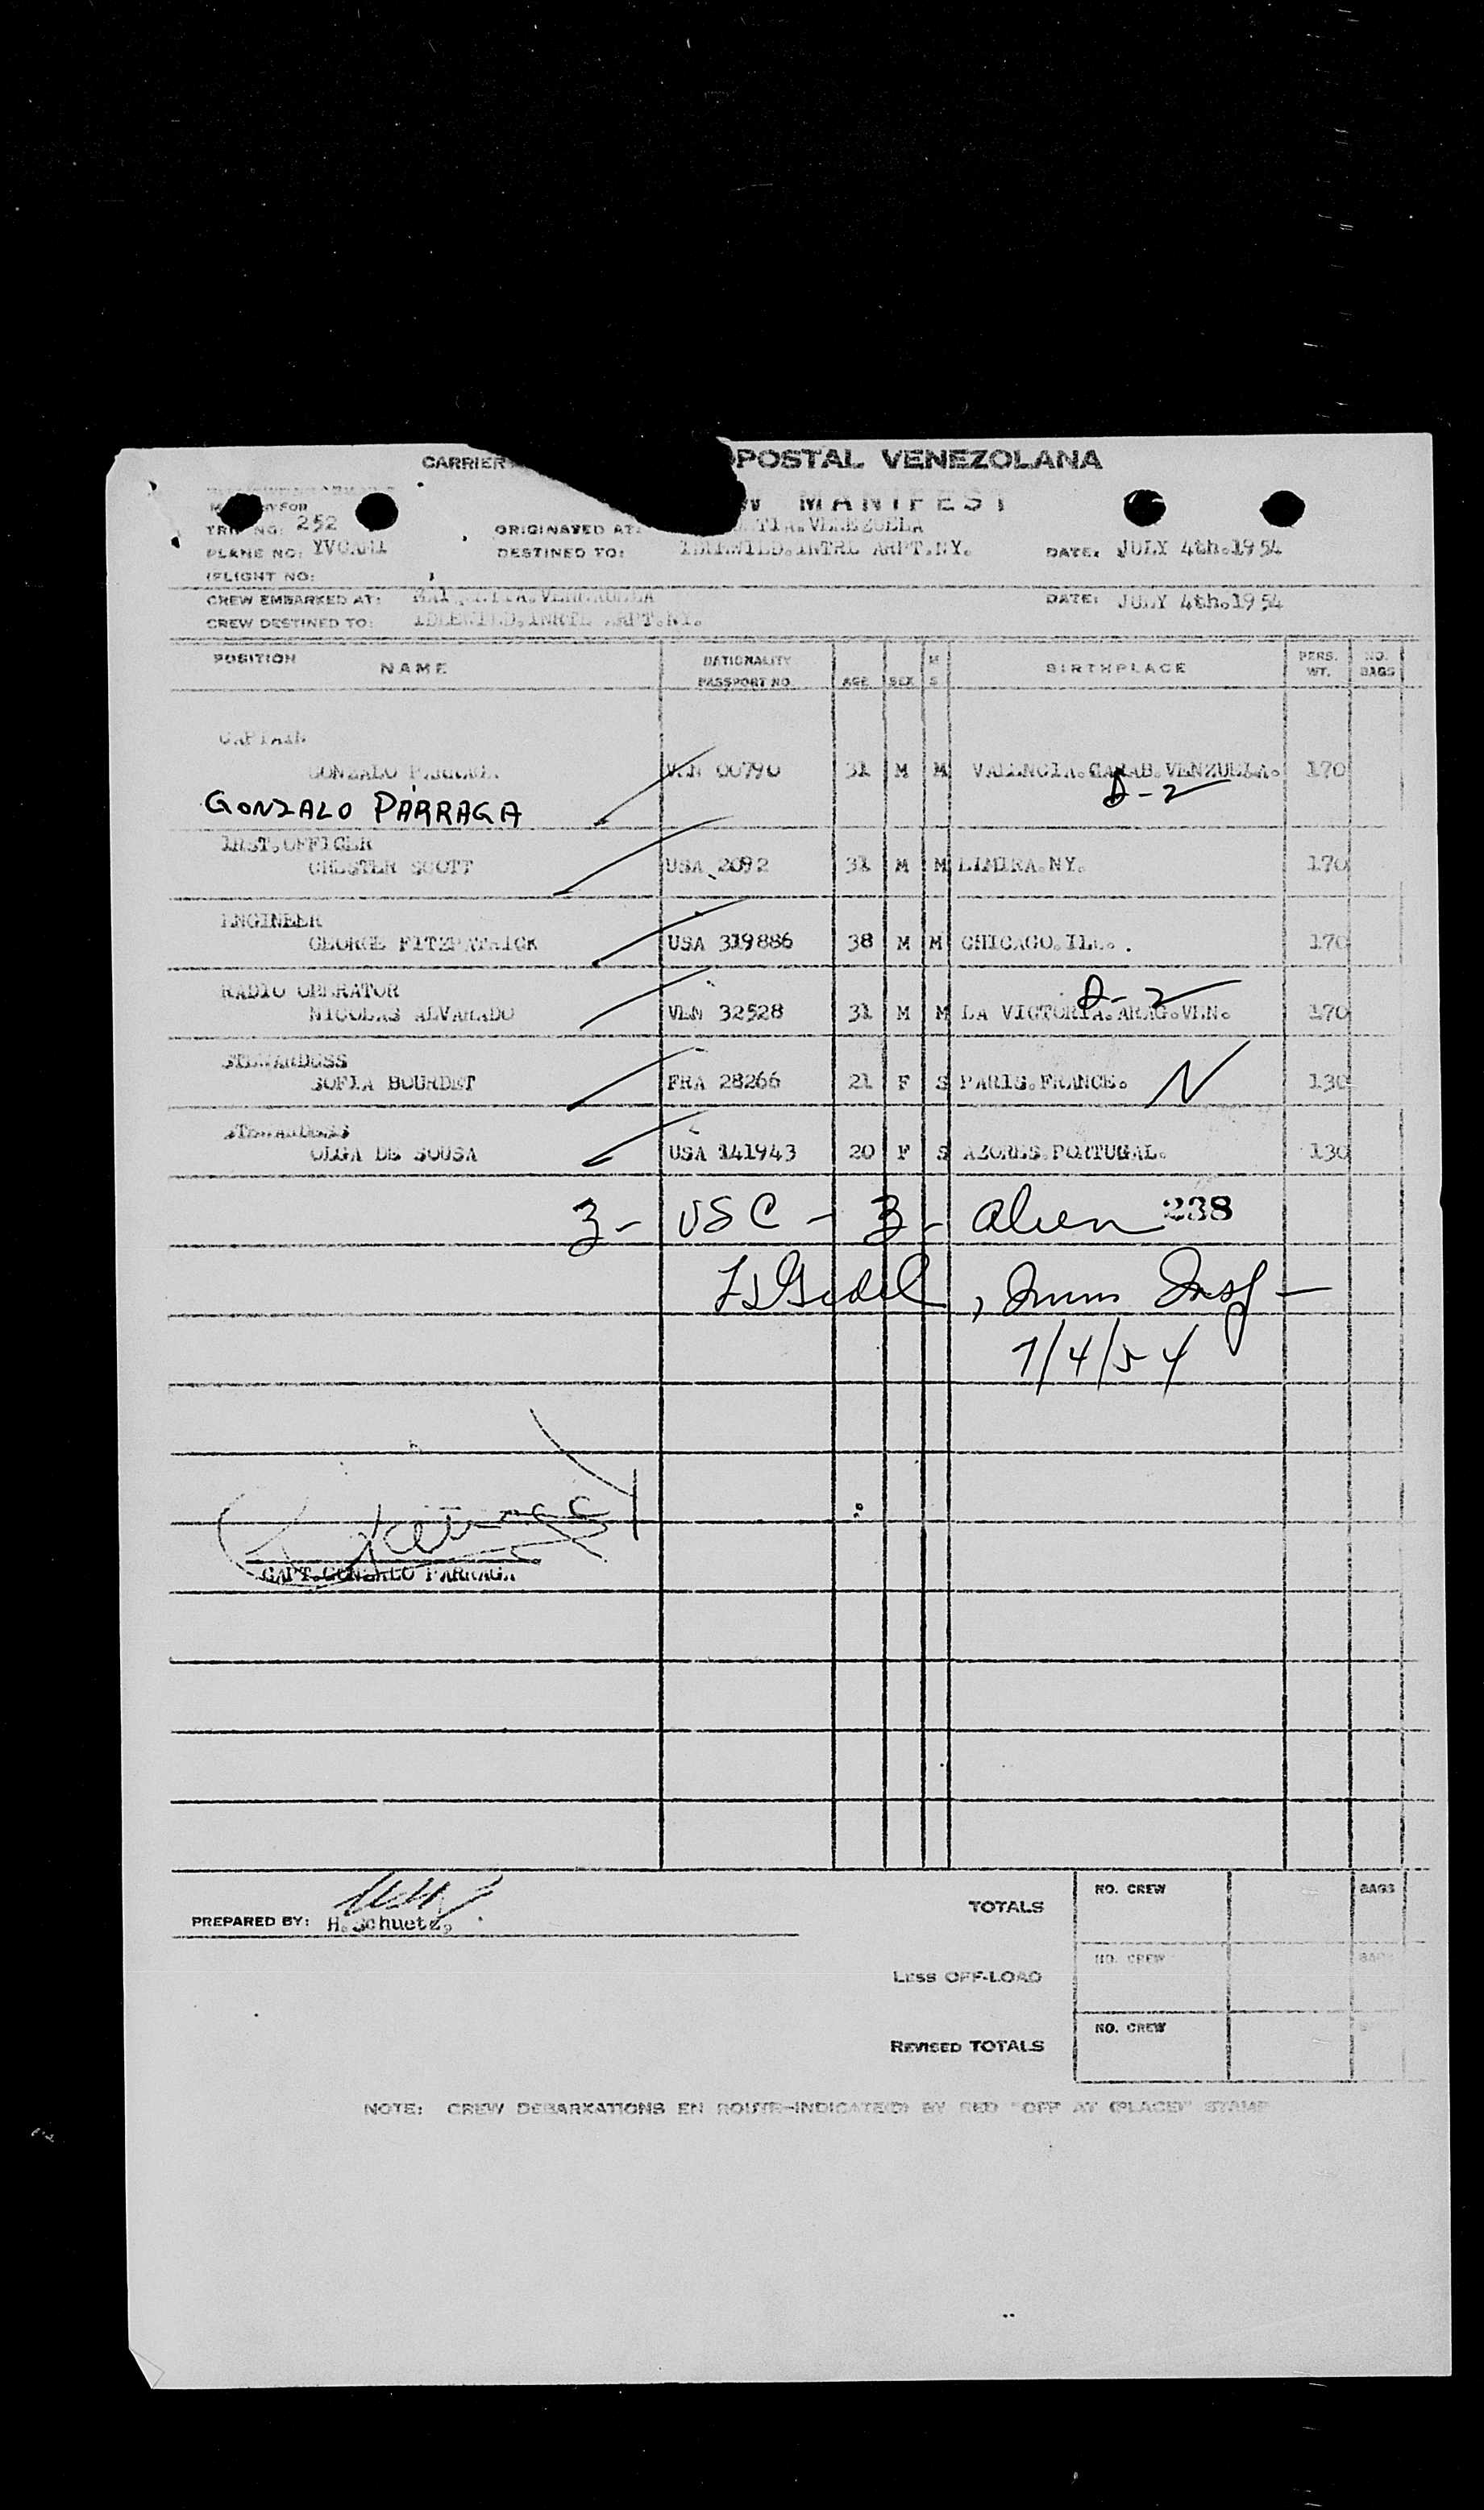 CARRIER POSTAL VENEZOLANA
MANIFEST
TRIP NO: 252 ORIGINATED AT: VENEZUELA
PLANE NO: DESTINED TO: IDLEWILD.INTRL ARPT.NY. DATE: JULY 4th.1954
(FLIGHT NO:
CREW EMBARKED AT: DATE: JULY 4th.1954
CREW DESTINED TO: IDLEWILD. ARPT.NY.
POSITION NAME NATIONALITY PASSPORT NO. AGE SEX M S BIRTHPLACE PERS. WT. NO. BAGS
CAPTAIN
GONZALO PARRAGA VEN 00790 31 M M VALENCIA.CARAB.VENZUELA. 170
GONZALO PÁRRAGA D-2
OFFICER
CHESTER SCOTT USA 2092 31 M M NY. 170
ENGINEER
GEORGE FITZPATRICK USA 319886 38 M M CHICAGO.ILL. 170
RADIO OPERATOR D-2
NICOLAS ALVARADO VEN 32528 31 M M LA VICTORIA.ARAG.VEN. 170
STEWARDESS
SOFIA BOURDET FRA 28266 21 F S PARIS.FRANCE. N 130
STEWARDESS
OLGA DE SOUSA USA 141943 20 F S AZORES.PORTUGAL. 130
3- USC - 3- alien 238
, Imm Insp -
7/4/54
CAPT.GONZALO PARRAGA
PREPARED BY: H. Schuetz,
TOTALS NO. CREW BAGS
LESS OFF-LOAD NO. CREW BAGS
REVISED TOTALS NO. CREW
NOTE: CREW DEBARKATIONS EN ROUTE-INDICATE(D) BY RED "OFF AT (PLACE)" STAMP